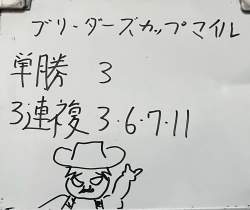 ブリーダーズカップマイル
単勝 3
3連複 3・6・7・11